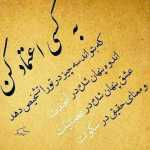 به کسی اعتماد کن
که بتواند سه چیز در تو را تشخیص دهد
اندوه پنهان شده در
عشق پنهان شده در عصبانیت
و معنای حقیقی در سکوت